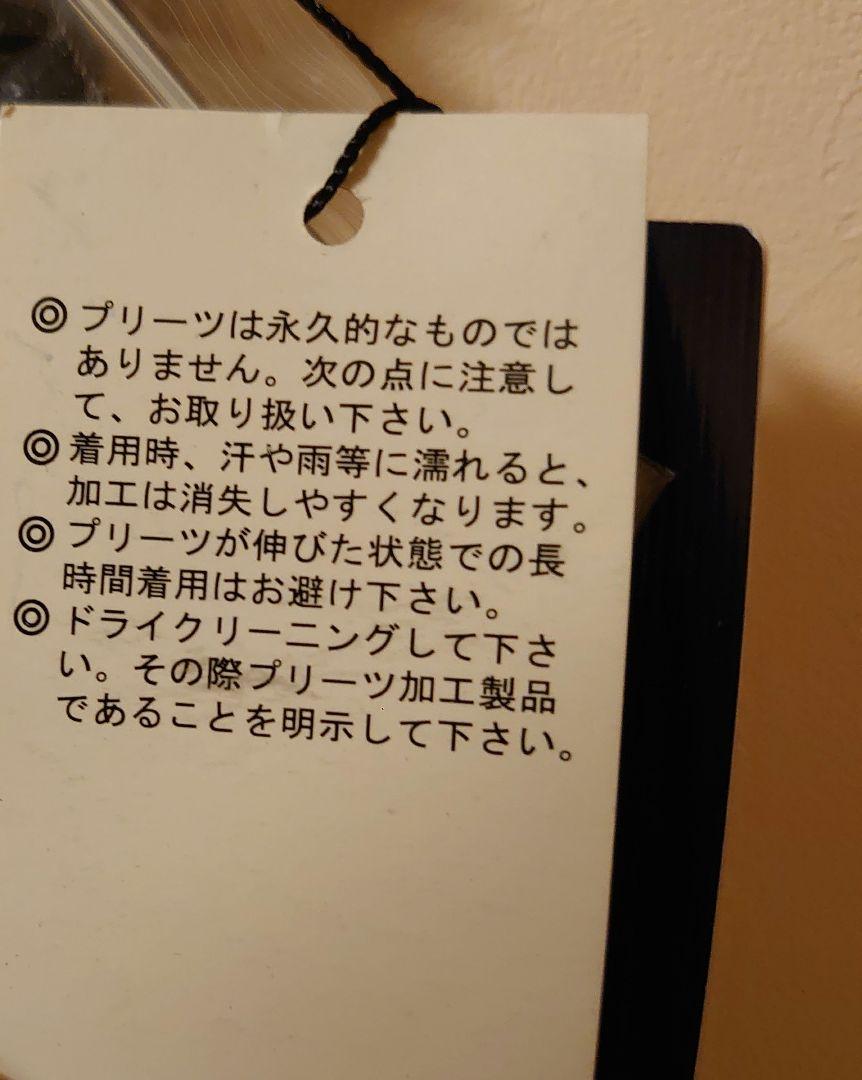 ◎プリーツは永久的なものでは
ありません。次の点に注意し
て、お取り扱い下さい。
◎着用時、汗や雨等に濡れると、
加工は消失しやすくなります。
◎プリーツが伸びた状態での長
時間着用はお避け下さい。
◎ドライクリーニングして下さ
い。その際プリーツ加工製品
であることを明示して下さい。